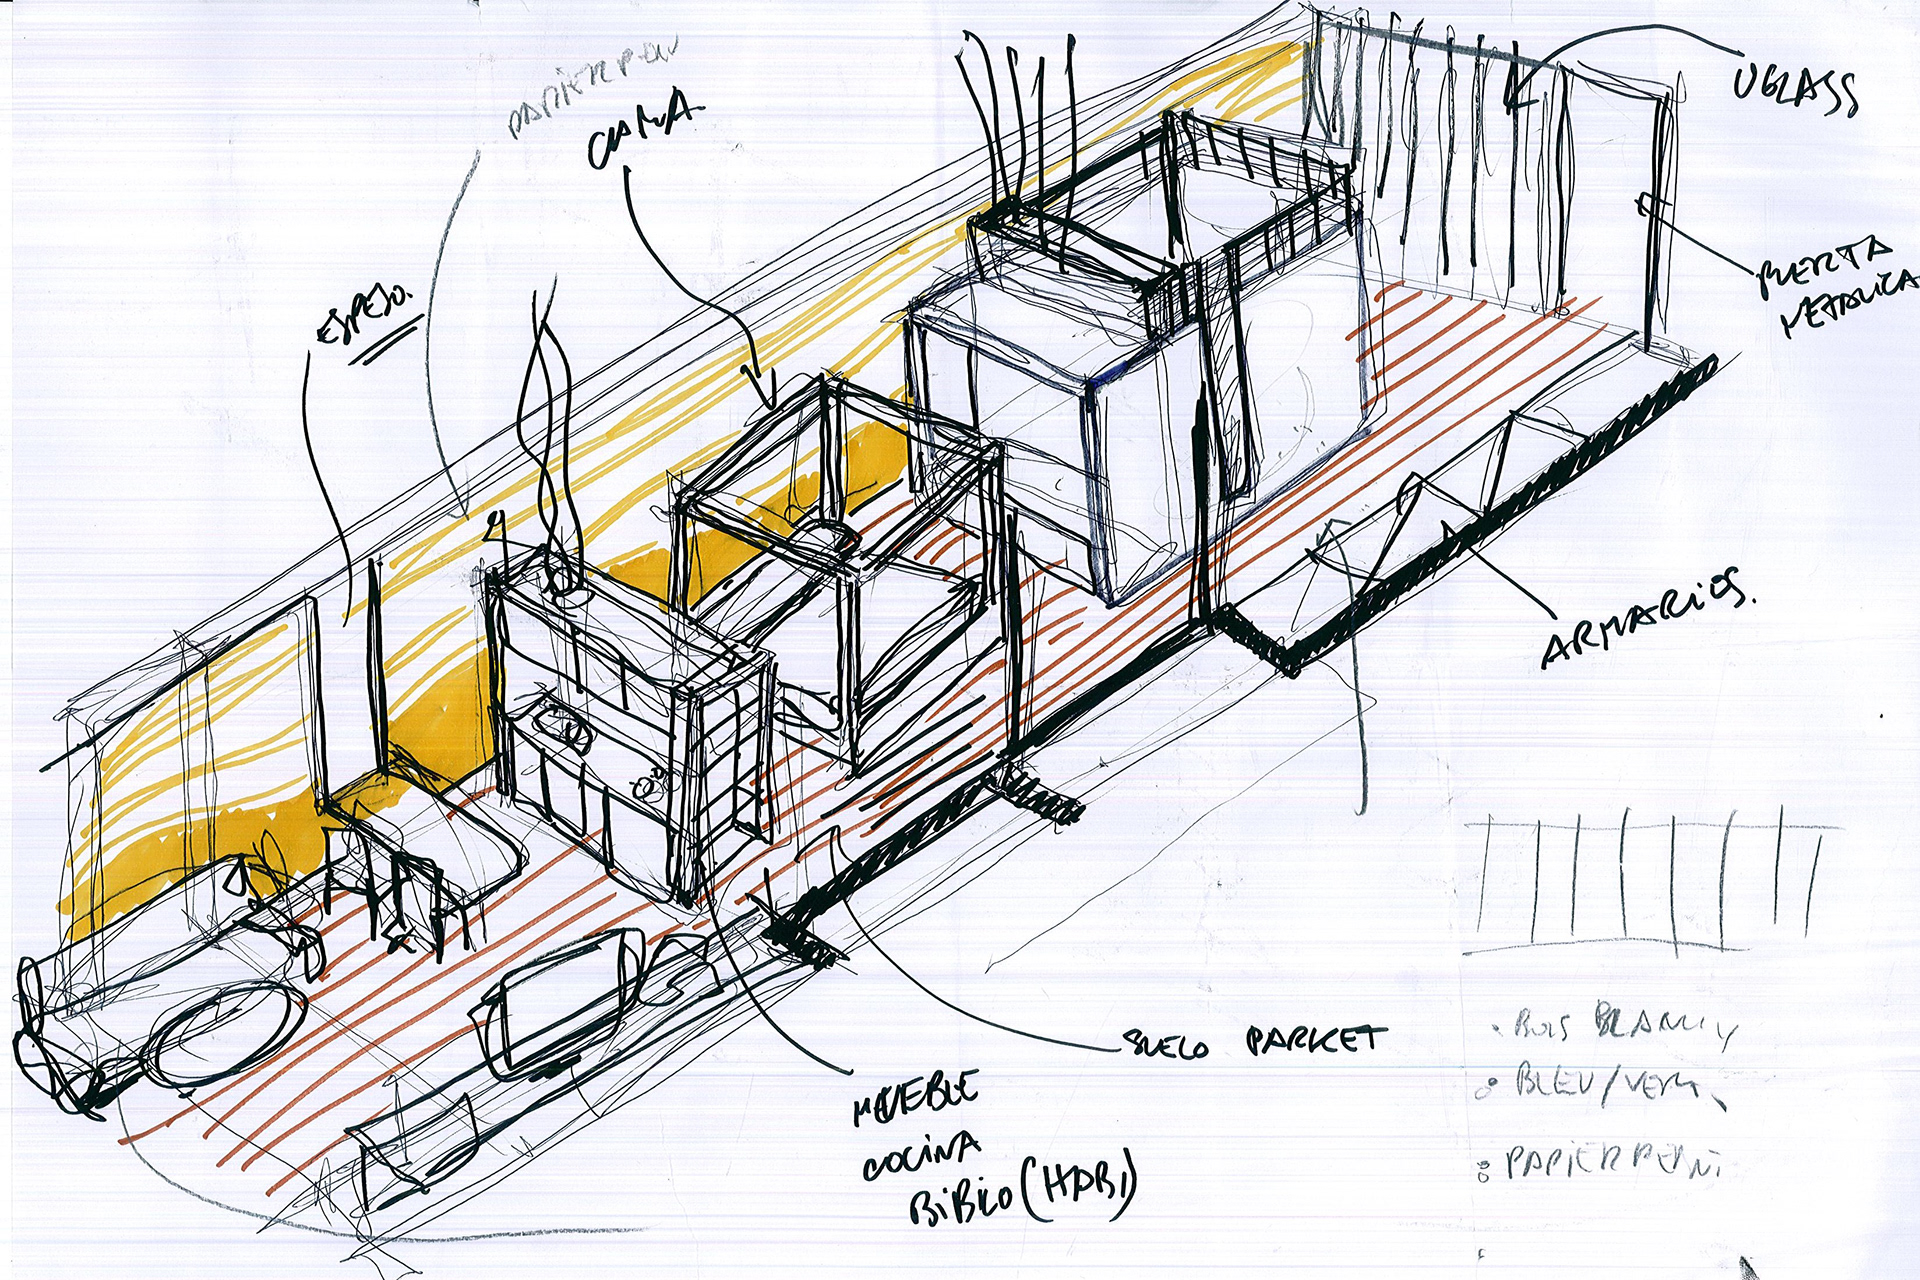 PAPIER PEIN
CAMA.
ESPEJO.
UGLASS
PUERTA
METALICA
ARMARIOS.
SUELO PARKET
MUEBLE
COCINA
BIBLIO (HABI)
BOIS BLANC
BLEU/VERT
PAPIER PEINT